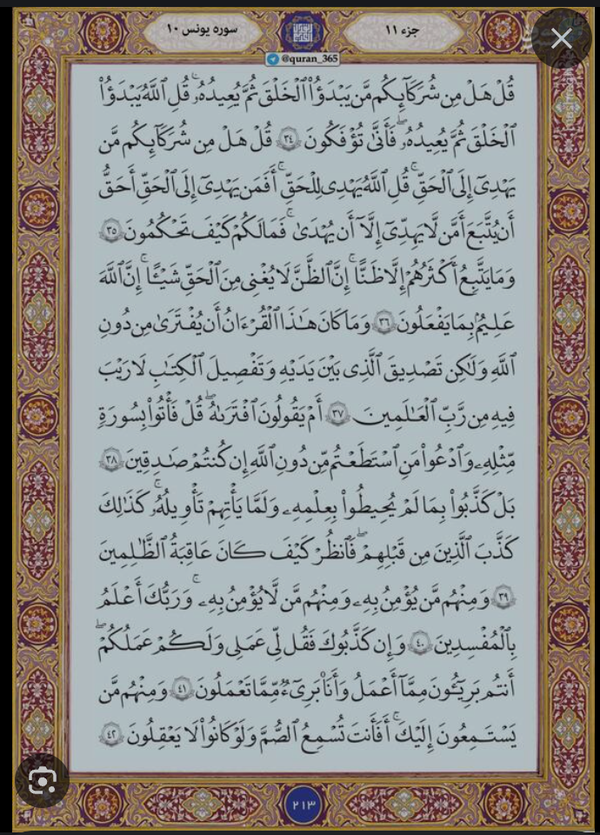 سوره یونس ۱۰
جزء ۱۱
@quran_365
قُلْ هَلْ مِن شُرَكَآئِكُم مَّن يَبْدَؤُا۟ ٱلْخَلْقَ ثُمَّ يُعِيدُهُۥ ۚ قُلِ ٱللَّهُ يَبْدَؤُا۟
ٱلْخَلْقَ ثُمَّ يُعِيدُهُۥ ۖ فَأَنَّىٰ تُؤْفَكُونَ ۝٣٤ قُلْ هَلْ مِن شُرَكَآئِكُم مَّن
يَهْدِىٓ إِلَى ٱلْحَقِّ ۚ قُلِ ٱللَّهُ يَهْدِى لِلْحَقِّ ۗ أَفَمَن يَهْدِىٓ إِلَى ٱلْحَقِّ أَحَقُّ
أَن يُتَّبَعَ أَمَّن لَّا يَهِدِّىٓ إِلَّآ أَن يُهْدَىٰ ۖ فَمَا لَكُمْ كَيْفَ تَحْكُمُونَ ۝٣٥
وَمَا يَتَّبِعُ أَكْثَرُهُمْ إِلَّا ظَنًّا ۚ إِنَّ ٱلظَّنَّ لَا يُغْنِى مِنَ ٱلْحَقِّ شَيْـًٔا ۚ إِنَّ ٱللَّهَ
عَلِيمٌۢ بِمَا يَفْعَلُونَ ۝٣٦ وَمَا كَانَ هَـٰذَا ٱلْقُرْءَانُ أَن يُفْتَرَىٰ مِن دُونِ
ٱللَّهِ وَلَـٰكِن تَصْدِيقَ ٱلَّذِى بَيْنَ يَدَيْهِ وَتَفْصِيلَ ٱلْكِتَـٰبِ لَا رَيْبَ
فِيهِ مِن رَّبِّ ٱلْعَـٰلَمِينَ ۝٣٧ أَمْ يَقُولُونَ ٱفْتَرَىٰهُ ۖ قُلْ فَأْتُوا۟ بِسُورَةٍ
مِّثْلِهِۦ وَٱدْعُوا۟ مَنِ ٱسْتَطَعْتُم مِّن دُونِ ٱللَّهِ إِن كُنتُمْ صَـٰدِقِينَ ۝٣٨
بَلْ كَذَّبُوا۟ بِمَا لَمْ يُحِيطُوا۟ بِعِلْمِهِۦ وَلَمَّا يَأْتِهِمْ تَأْوِيلُهُۥ ۚ كَذَٰلِكَ
كَذَّبَ ٱلَّذِينَ مِن قَبْلِهِمْ ۖ فَٱنظُرْ كَيْفَ كَانَ عَـٰقِبَةُ ٱلظَّـٰلِمِينَ
۝٣٩ وَمِنْهُم مَّن يُؤْمِنُ بِهِۦ وَمِنْهُم مَّن لَّا يُؤْمِنُ بِهِۦ ۚ وَرَبُّكَ أَعْلَمُ
بِٱلْمُفْسِدِينَ ۝٤٠ وَإِن كَذَّبُوكَ فَقُل لِّى عَمَلِى وَلَكُمْ عَمَلُكُمْ ۖ
أَنتُم بَرِيٓـُٔونَ مِمَّآ أَعْمَلُ وَأَنَا۠ بَرِىٓءٌ مِّمَّا تَعْمَلُونَ ۝٤١ وَمِنْهُم مَّن
يَسْتَمِعُونَ إِلَيْكَ ۚ أَفَأَنتَ تُسْمِعُ ٱلصُّمَّ وَلَوْ كَانُوا۟ لَا يَعْقِلُونَ ۝٤٢
۲۱۳